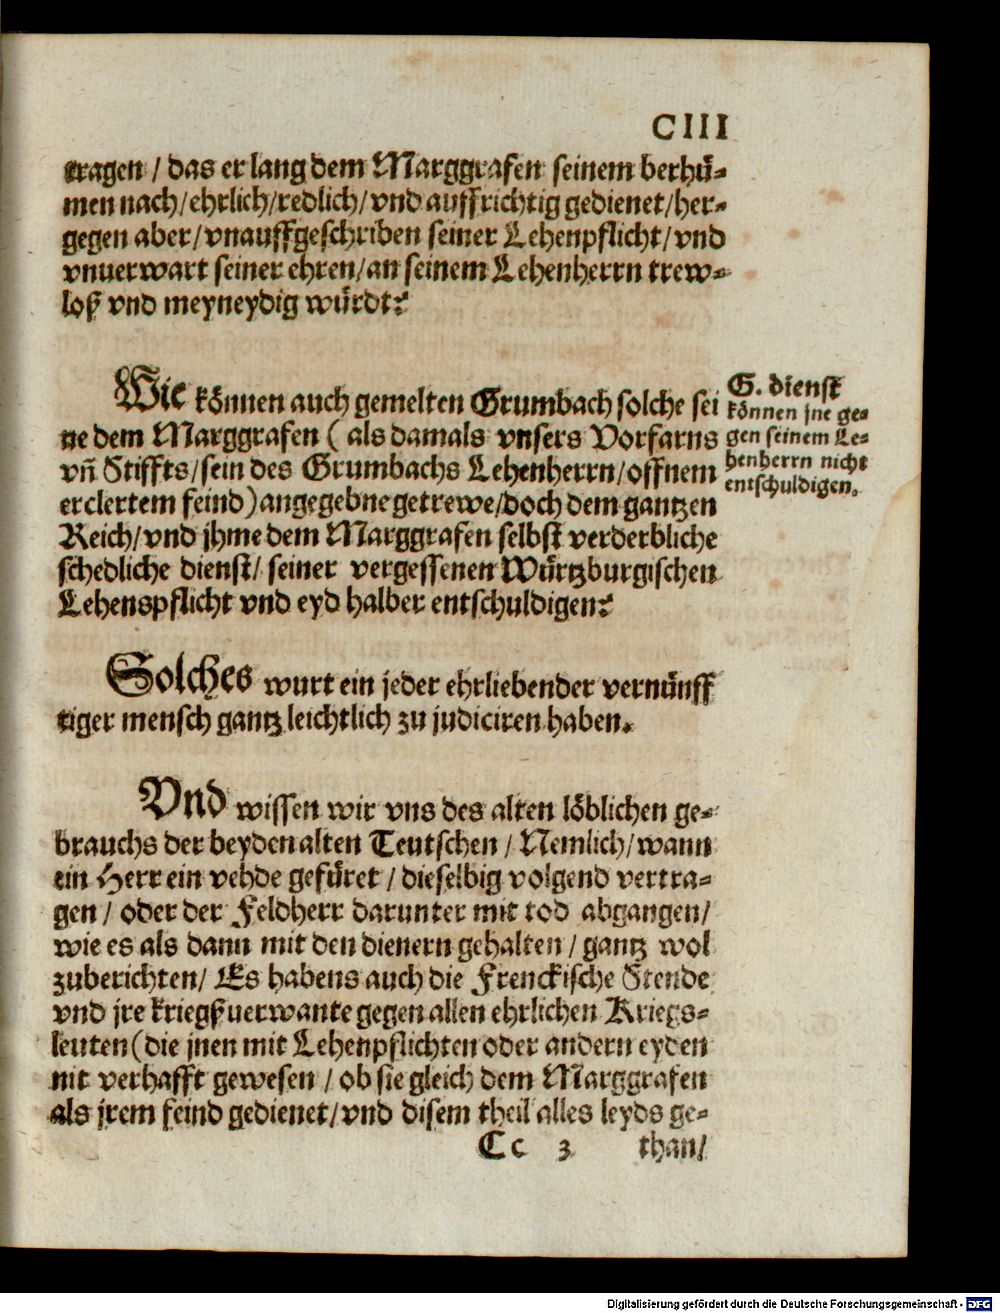 CIII
tragen / das er lang dem Marggrafen seinem berhů-
men nach/ehrlich/redlich/vnd auffrichtig gedienet/her-
gegen aber/vnauffgeschriben seiner Lehenpflicht/vnd
vnuerwart seiner ehren/an seinem Lehenherrn trew-
loß vnd meyneydig würdt?
Wie können auch gemelten Grumbach solche sei
ne dem Marggrafen ( als damals vnsers Vorfarns
vñ Stiffts/sein des Grumbachs Lehenherrn/offnem
erclertem feind) angegebne getrewe/doch dem gantzen
Reich/vnd jhme dem Marggrafen selbst verderbliche
schedliche dienst/ seiner vergessenen Würtzburgischen
Lehenspflicht vnd eyd halber entschuldigen?
G. dienst
können jne ge-
gen seinem Le-
henherrn nicht
entschuldigen.
Solches wurt ein jeder ehrliebender vernünff
tiger mensch gantz leichtlich zu judiciren haben.
Vnd wissen wir vns des alten löblichen ge-
brauchs der beyden alten Teutschen / Nemlich/wann
ein Herr ein vehde gefüret / dieselbig volgend vertra-
gen / oder der Feldherr darunter mit tod abgangen/
wie es als dann mit den dienern gehalten / gantz wol
zuberichten/ Es habens auch die Frenckische Stende
vnd jre kriegßuerwante gegen allen ehrlichen Kriegs-
leuten (die jnen mit Lehenpflichten oder andern eyden
nit verhafft gewesen / ob sie gleich dem Marggrafen
als jrem feind gedienet/vnd disem theil alles leyds ge-
Cc 3 than/
Digitalisierung gefördert durch die Deutsche Forschungsgemeinschaft - DFG